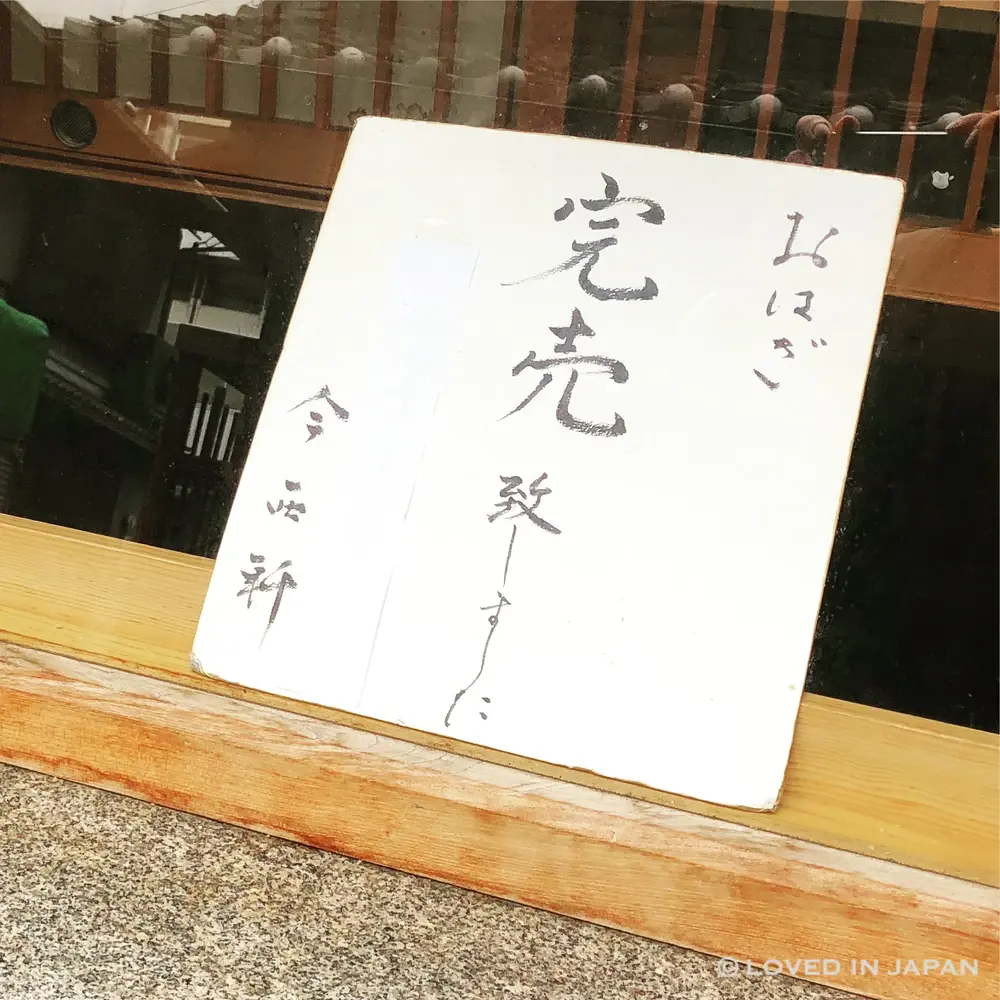 おはぎ
完売致しました
今西軒
© LOVED IN JAPAN